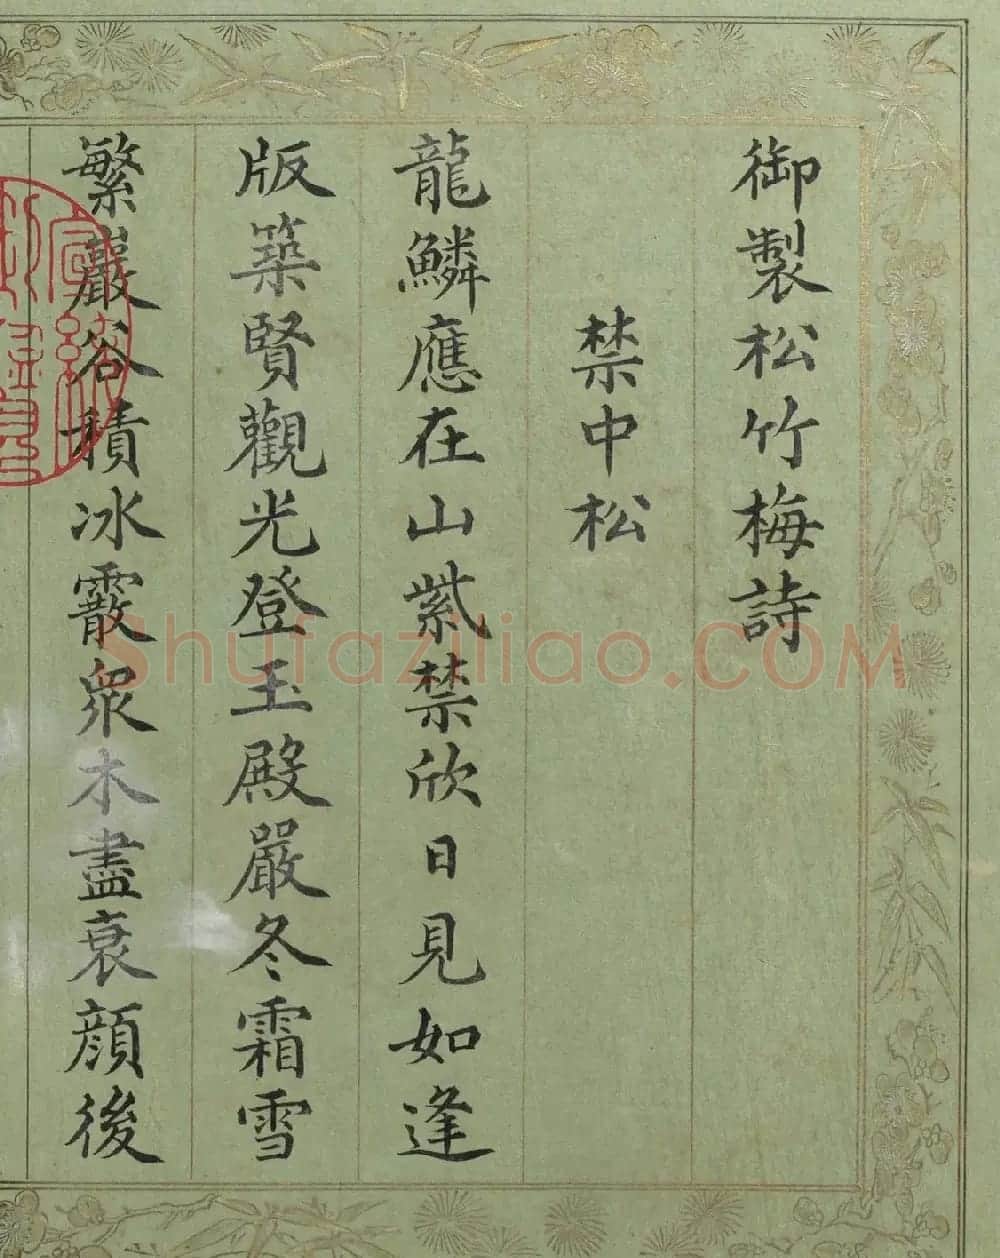 御製松竹梅詩
禁中松
龍鱗應在山紫禁欣日見如逢
版築賢觀光登玉殿嚴冬霜雪
繁巖谷積冰霰衆木盡衰顔後
Shufaziliao.COM